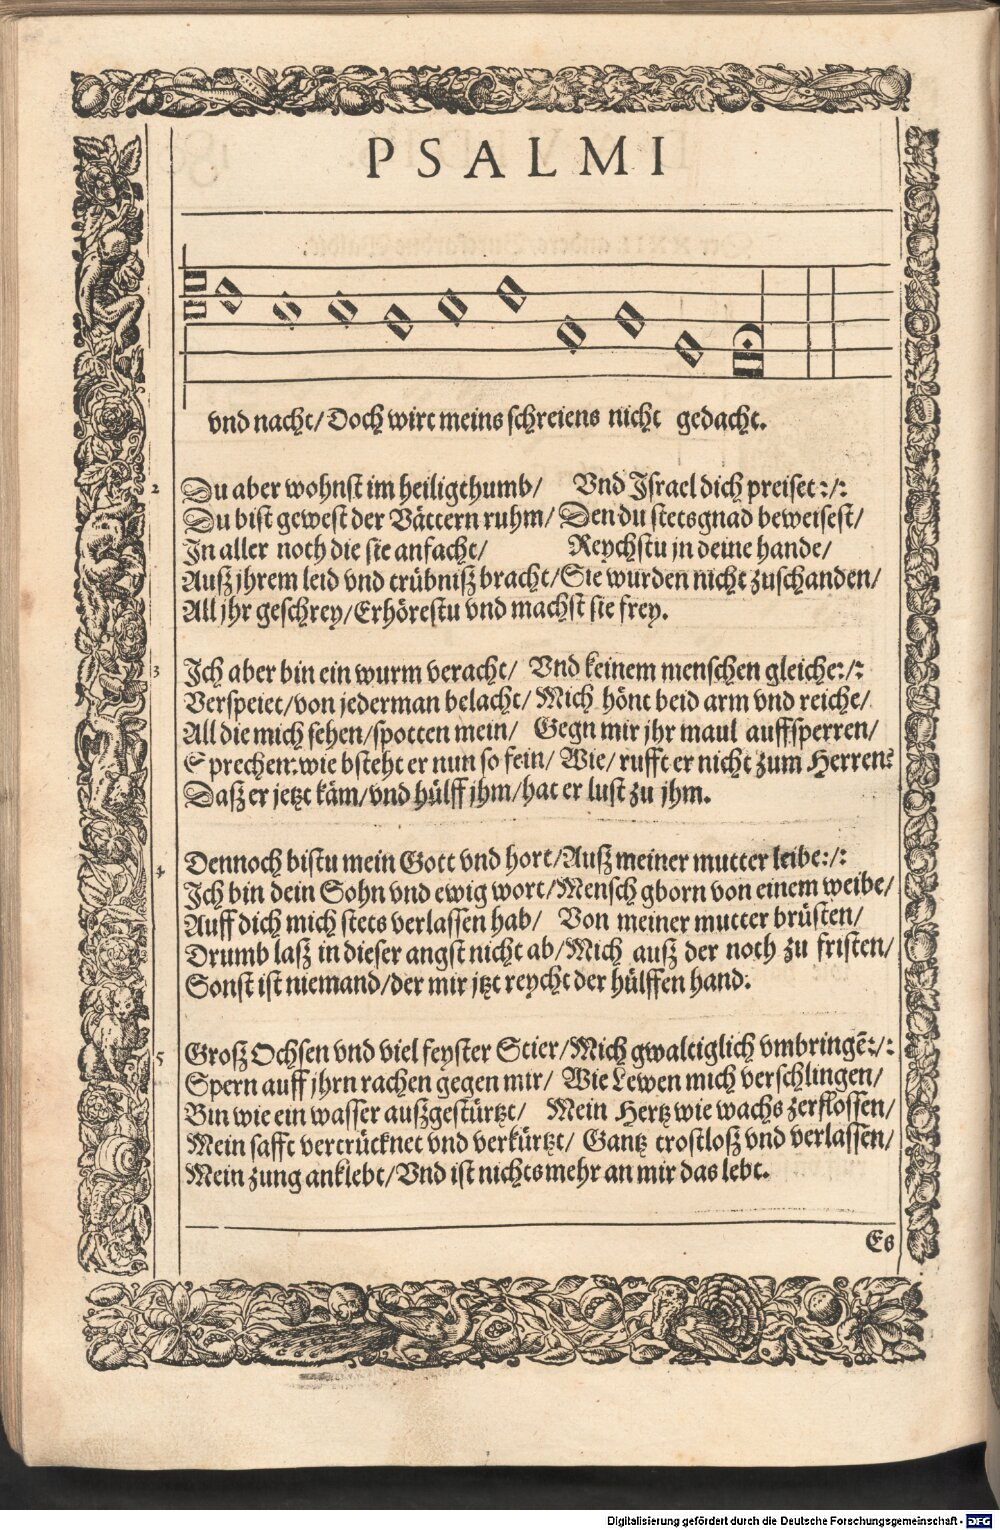 PSALMI
vnd nacht/ Doch wirt meins schreiens nicht gedacht.
2 Du aber wohnst im heiligthumb/ Vnd Israel dich preiset :/:
Du bist gewest der Vättern ruhm/ Den du stets gnad beweisest/
In aller noth die sie anfacht/ Reychstu jn deine hande/
Auß jhrem leid vnd trübniß bracht/ Sie wurden nicht zuschanden/
All jhr geschrey/ Erhörestu vnd machst sie frey.
3 Ich aber bin ein wurm veracht/ Vnd keinem menschen gleiche:/:
Verspeiet/ von jederman belacht/ Mich hönt beid arm vnd reiche/
All die mich sehen/ spotten mein/ Gegn mir jhr maul auffsperren/
Sprechen: wie bsteht er nun so fein/ Wie/ rufft er nicht zum Herren?
Daß er jetzt käm/ vnd hülff jhm/ hat er lust zu jhm.
4 Dennoch bistu mein Gott vnd hort/ Auß meiner mutter leibe:/:
Ich bin dein Sohn vnd ewig wort/ Mensch gborn von einem weibe/
Auff dich mich stets verlassen hab/ Von meiner mutter brüsten/
Drumb laß in dieser angst nicht ab/ Mich auß der noth zu fristen/
Sonst ist niemand/ der mir jtzt reycht der hülffen hand.
5 Groß Ochsen vnd viel feyster Stier/ Mich gwaltiglich vmbringẽ:/:
Spern auff jhrn rachen gegen mir/ Wie Lewen mich verschlingen/
Bin wie ein wasser außgestürtzt/ Mein Hertz wie wachs zerflossen/
Mein safft vertrücknet vnd verkürtzt/ Gantz trostloß vnd verlassen/
Mein zung anklebt/ Vnd ist nichts mehr an mir das lebt.
Es
Digitalisierung gefördert durch die Deutsche Forschungsgemeinschaft - DFG